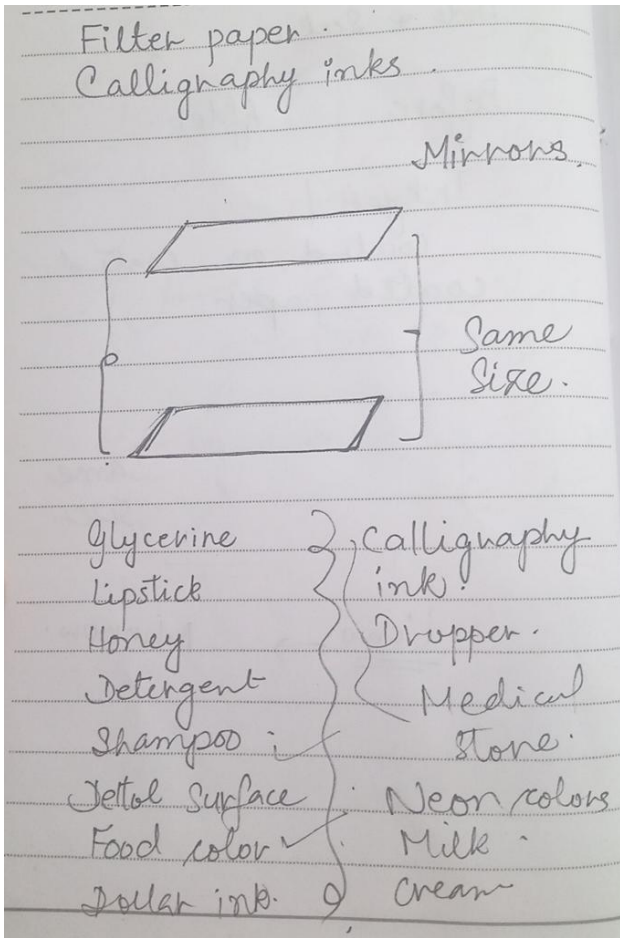 Filter paper.
Calligraphy inks.
Mirrors.
Same
Size.
Glycerine
Lipstick
Honey
Detergent
Shampoo
Dettol Surface
Food color
Dollar ink.
Calligraphy
ink.
Dropper.
Medical
store.
Neon colors
Milk.
Cream